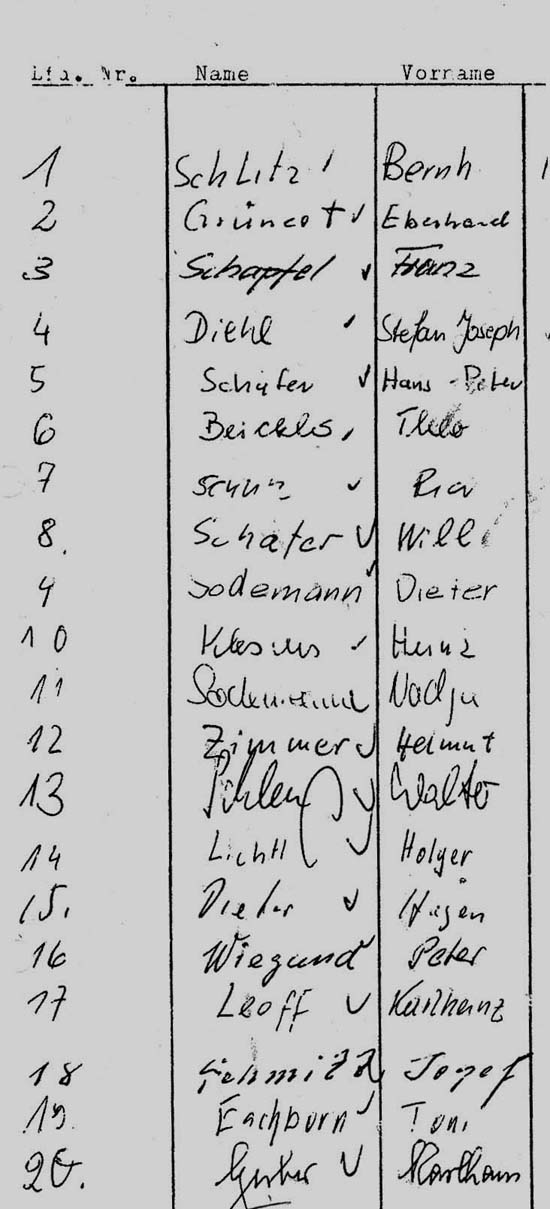 Lfd. Nr. Name Vorname
1 Schlitz Bernh
2 Eberhard
3 Schapfel Franz
4 Diehl Stefan Joseph
5 Schäfer Hans-Peter
6 Theo
7
8. Schäfer Willi
9 Sodemann Dieter
10 Heinz
11 Sodemann Nadja
12 Zimmer Helmut
13 Walter
14 Licht Holger
15. Dieter Hagen
16 Wiegand Peter
17 Leoff Karlheinz
18 Schmitz Josef
19. Eachborn Toni
20. Karlhans